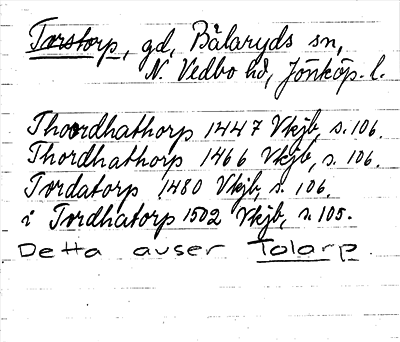 Torstorp, gd, Bälaryds sn,
N. Vedbo hd, Jönköp. l.
Thordhathorp 1447 Vkjb, s. 106.
Thordhathorp 1466 Vkjb, s. 106.
Tordatorp 1480 Vkjb, s. 106.
i Tordhatorp 1502 Vkjb, s. 105.
Detta avser Tolarp.